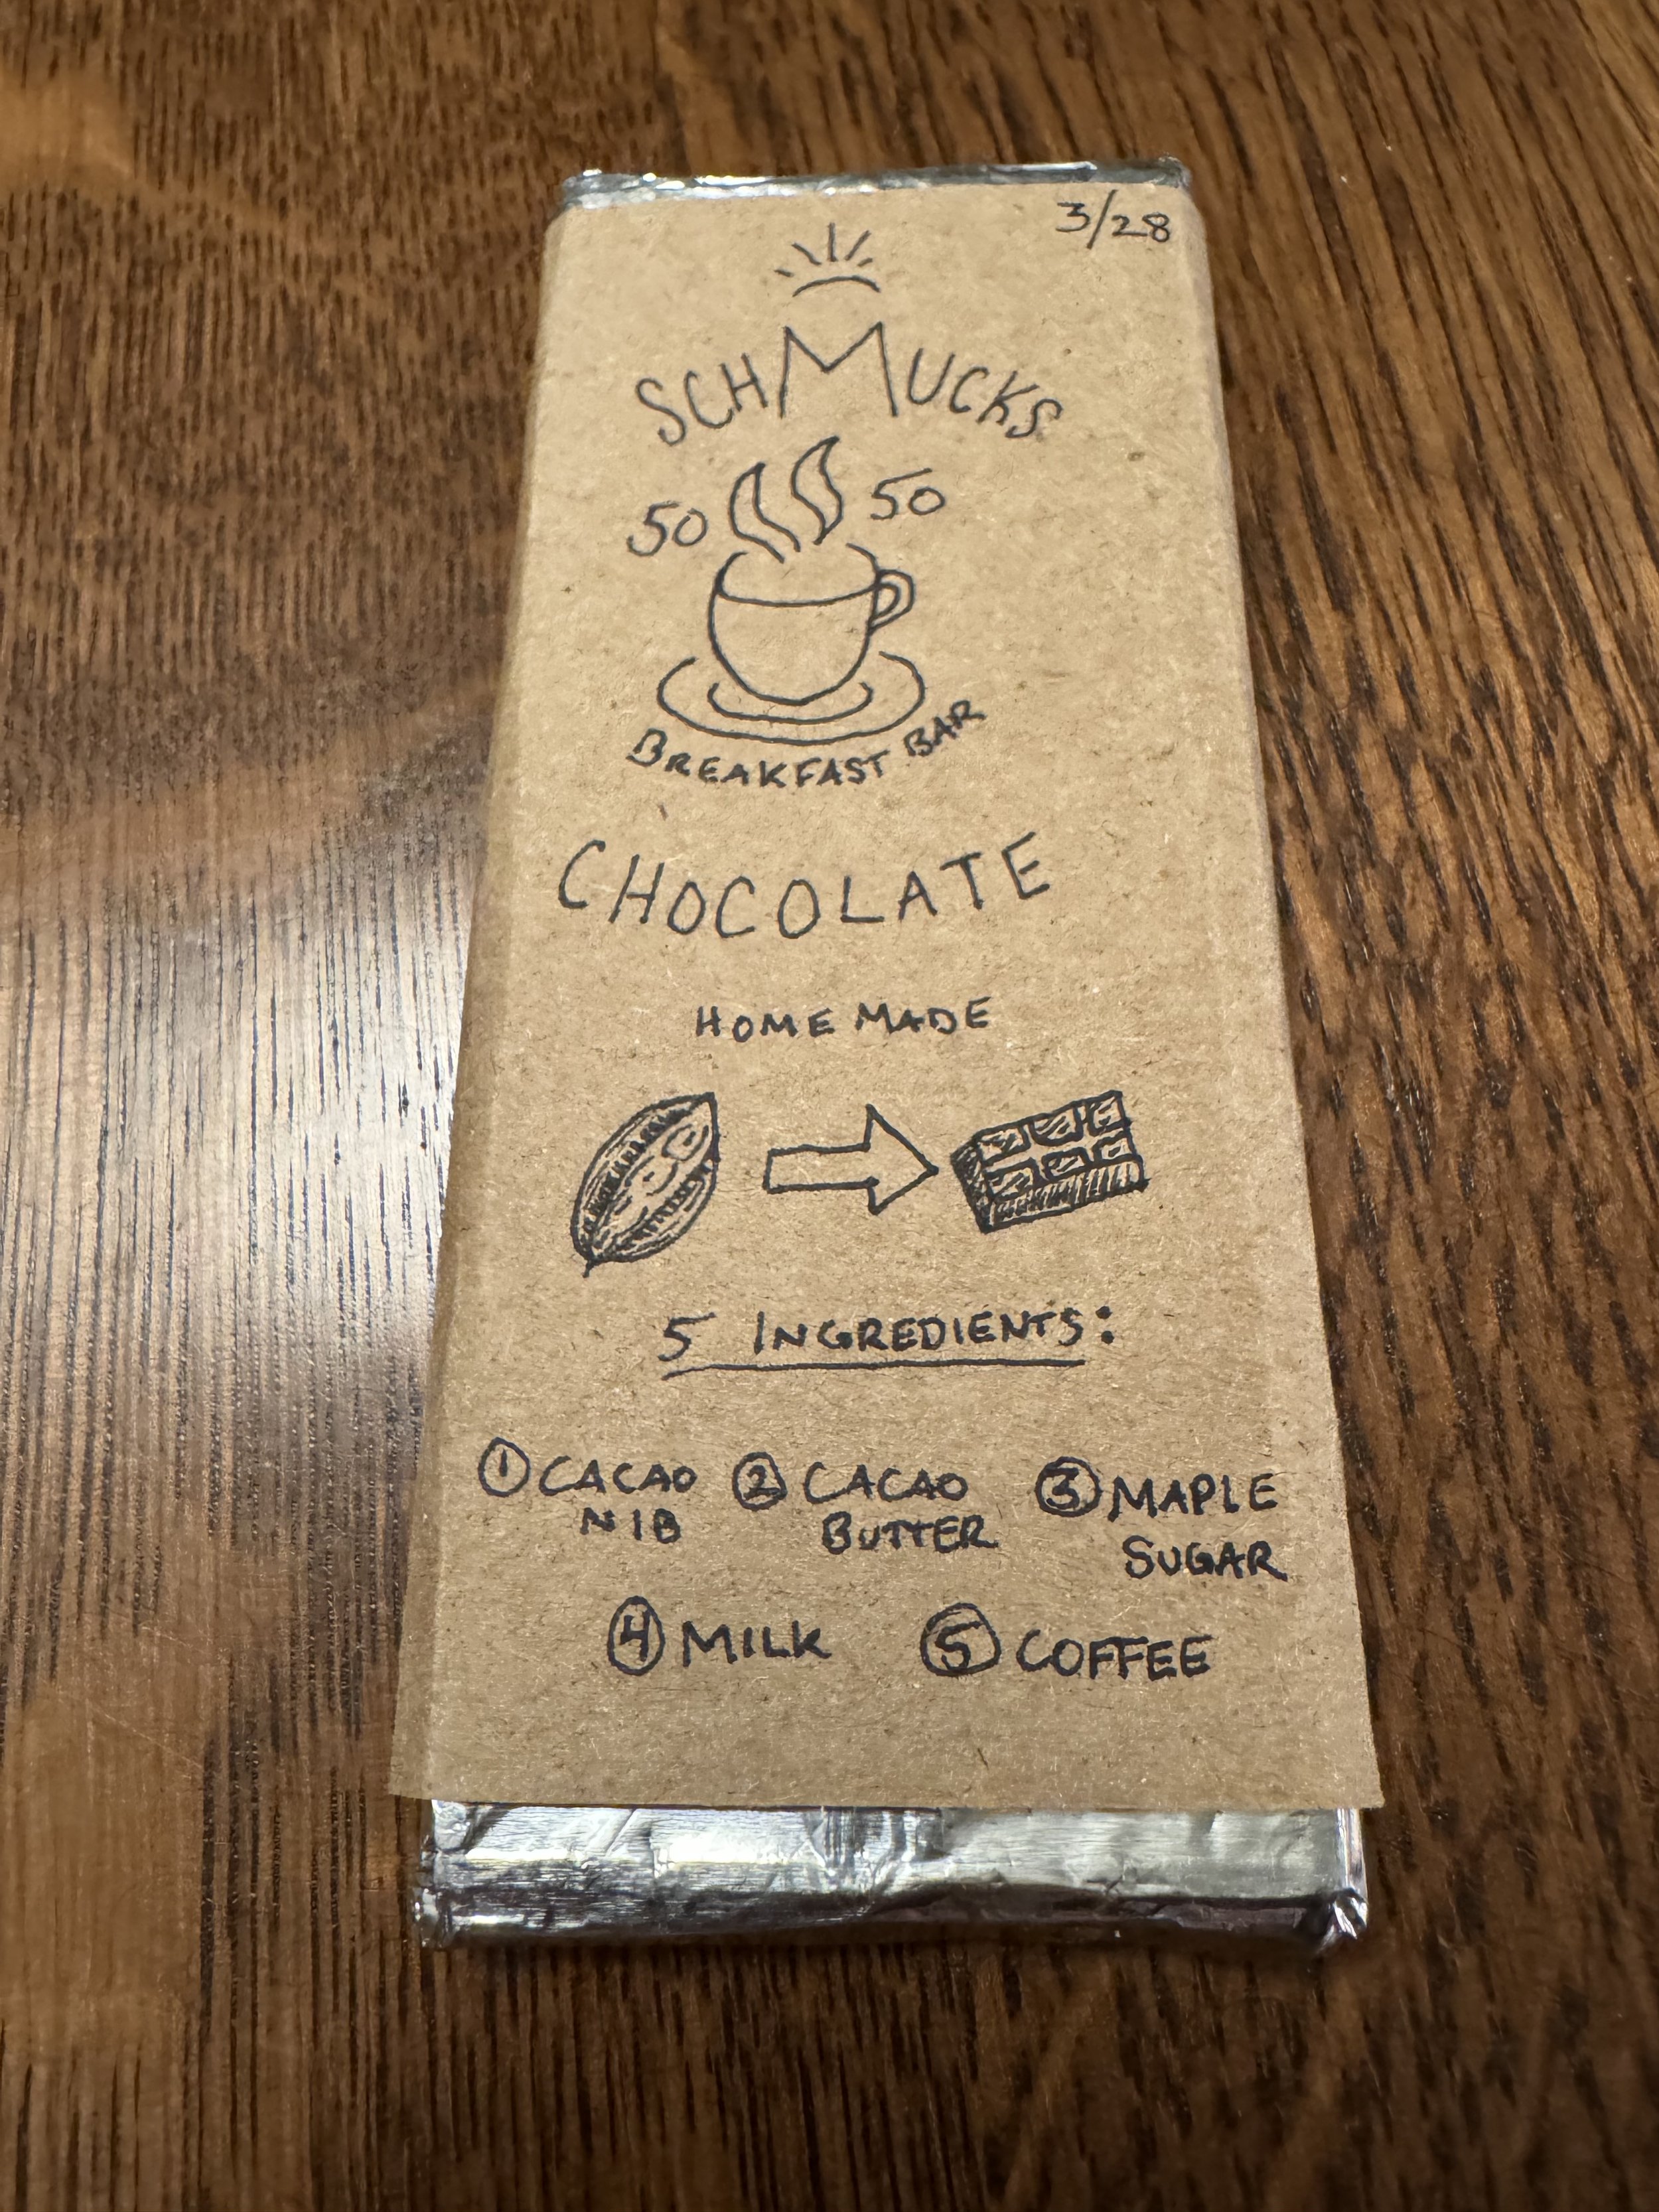 3/28
SCHMUCKS
50 50
BREAKFAST BAR
CHOCOLATE
HOME MADE
5 INGREDIENTS:
① CACAO NIB ② CACAO BUTTER ③ MAPLE SUGAR
④ MILK ⑤ COFFEE